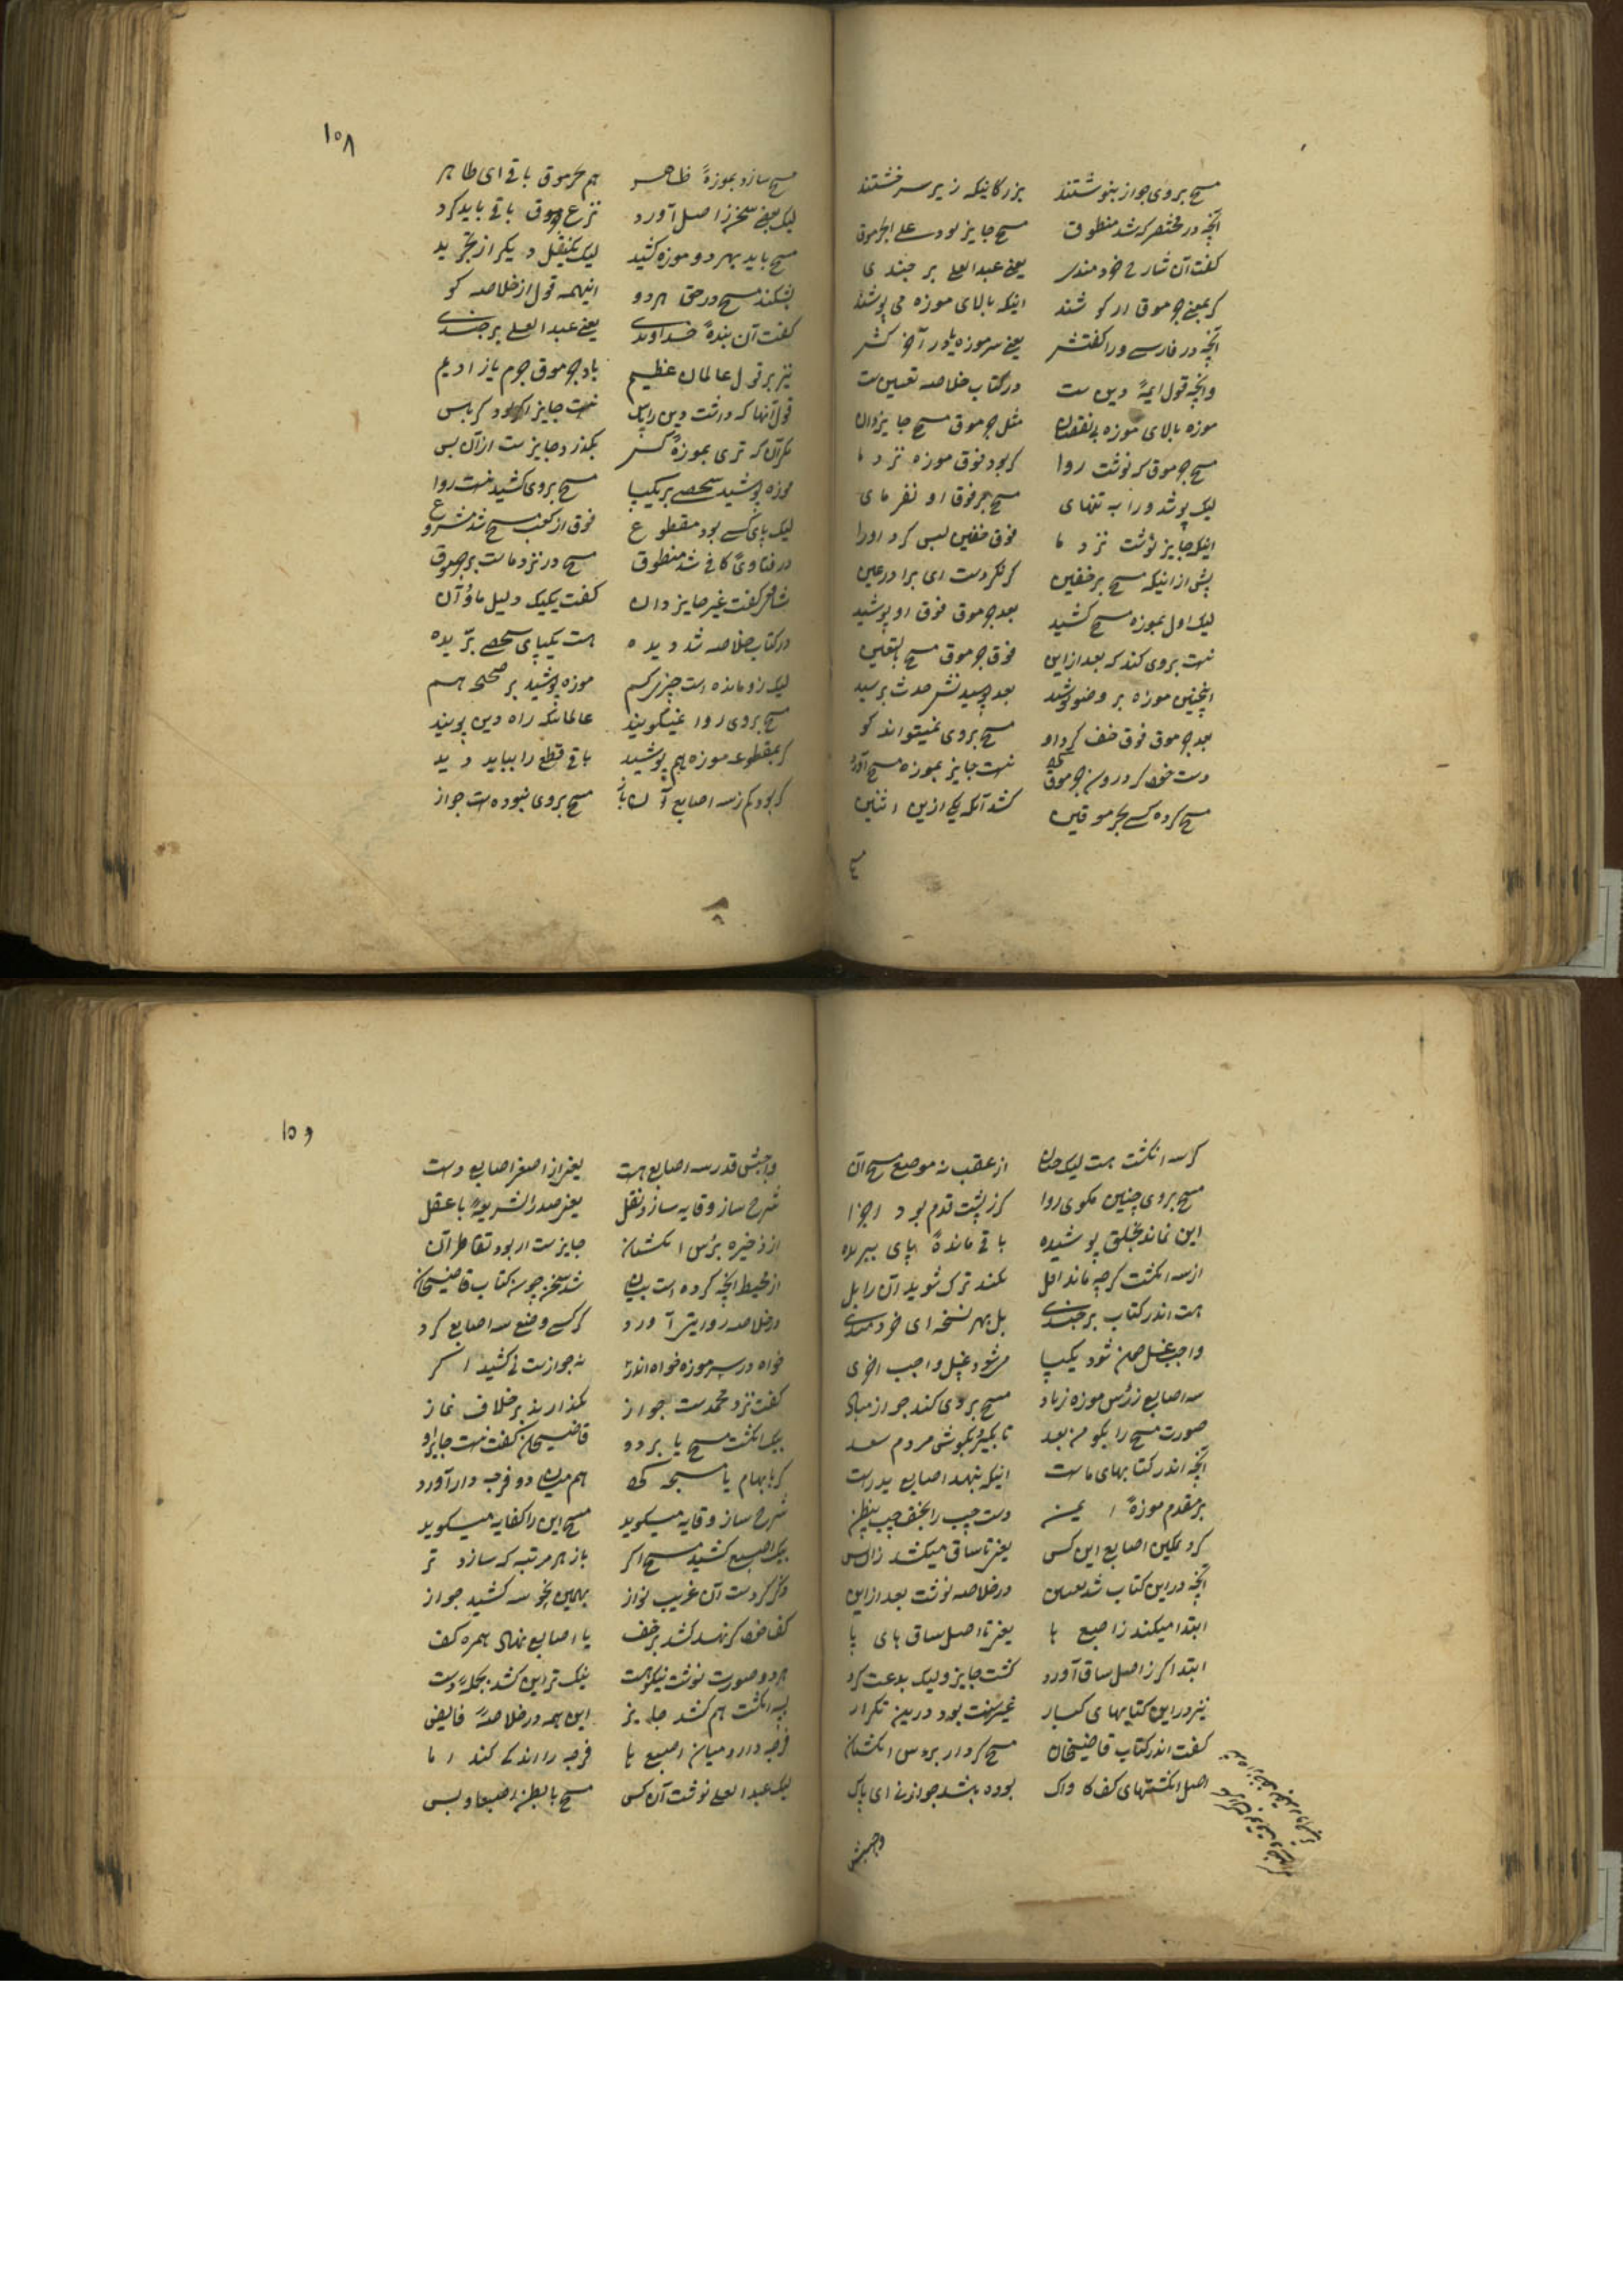 مسح بروی جواز بنوشتند بزرگانیکه زیر سر خشتند
آنچه در مختصر که شد منطوق مسح جایز بود علی الجرموق
گفت آن شارح خردمندی یعنی عبدالعلی برجندی
که بمعنی جرموق ار کوشند اینکه بالای موزه می پوشند
آنچه در فارسی ورا کفتش یعنی سر موزه
وانچه قول ایمهٔ دین ست در کتاب خلاصه تعیین ست
موزه بالای موزه بی نقصان مثل جرموق مسح جایز دان
مسح جرموق که نوشت روا گر بود فوق موزه نزد ما
لیک پوشد ورا به تنهای مسح بر فوق او نفرمای
اینکه جایز نوشت نزد ما فوق خفین لبس کرد اورا
پیش از اینکه مسح بر خفین کر نکردست ای برادر عین
لیک اول بموزه مسح کشید بعد جرموق فوق او پوشید
نیست بروی کند که بعد ازاین فوق جرموق مسح بالیقین
اینچنین موزه بر وضو پوشید بعد پوشیدنش حدث برسید
بعد جرموق فوق خف کرد او مسح بروی نمیتواند کو
دست خود کر درون جرموق نیست جایز بموزه مسح آورد
مسح کرده کسی بجرموقین کشد آنکه یکی ازین اثنین
مسح
۱۰۸
مسح سازد بموزهٔ ظاهر هم بجرموق باقی ای طاهر
لیک بعضی سخن ز اصل آورد نزع جرموق باقی باید کرد
مسح باید بهر دو موزه کشید لیک
بشکند مسح در حق هر دو اینهمه قول از خلاصه کو
گفت آن بندهٔ خداوندی یعنی عبدالعلی برجندی
نیز بر قول عالمان عظیم باد جرموق جرم یاز ادیم
قول آنها که در شت دین رایس نیست جایز اگر بود کرباس
مگر آن که تری بموزه کس بگذرد جایز ست ازآن بس
موزه پوشید شخصی بر یکپا مسح بروی کشید نیست روا
لیک پای کسی بود مقطوع فوق از کعب مسح شد مشروع
در فتاوی کافی شد منطوق مسح در نزد ماست بر جرموق
شافعی گفت غیر جایز دان گفت یکیک دلیل ما و آن
در کتاب خلاصه شد دیده هست یکپای شخصی بریده
لیک زو مانده است چیزی کم موزه پوشید بر صحیح هم
مسح بروی روا نمیگویند عالمانیکه راه دین پویند
گر بمقطوعه موزه هم پوشید باقی قطع را بباید دید
گر بود کم ز سه اصابع آن باز مسح بروی نبوده است جواز
گر سه انگشت هست لیک چنان از عقب نه موضع مسح آن
مسح بروی چنین مگوی روا کز پشت قدم بود اجزا
این نماند بخلق پوشیده باقی ماندهٔ پای ببریده
از سه انگشت گرچه ماند اقل نکند ترک شوید آن را بل
هست اندر کتاب برجندی بل بهر نسخه ای خردمندی
واجب غسل چون شود یکپا می شود غسل واجب اخری
سه اصابع ز رؤس موزه زیاد مسح بروی کند جواز مباد
صورت مسح را بگویم بعد تا بگیرد بگوش مردم سعد
آنچه اندر کتابهای ماست اینکه بنهد اصابع ید راست
بر مقدم موزهٔ ایمن دست چپ را بخف چپ
کرد تمکین اصابع این کس یعنی تا ساق میکشد زان پس
آنچه در این کتاب شد تعیین در خلاصه نوشت بعد ازاین
ابتدا میکند ز اصبع پا یعنی تا اصل ساق های پا
ابتدا گر ز اصل ساق آورد گشت جایز ولیک بدعت کرد
نیز در این کتابهای کبار غیر سنت بود درین تکرار
گفت اندر کتاب قاضیخان مسح کرد ار بروس انگشتان
اصل انگشتهای کف کاواک بوده باشد جواز نی ای پاک
واجبش
۱۰۹
واجبش قدر سه اصابع هست یعنی از اصغر اصابع دست
شرح ساز وقایه سازد نقل یعنی صدر الشریعهٔ باعقل
از ذخیره برؤس انگشتان جایز ست ار بود تقاطر آن
از محیط آنچه کرده است بیان شد سخن چون کتاب قاضیخان
در خلاصه روایتی آورد گر کسی وضع سه اصابع کرد
خواه در سر موزه خواه اندر نه جواز ست نی کشید اگر
گفت نزد محمدست جواز نگذارند بر خلاف نماز
بیک انگشت مسح پا برده قاضیخان گفت نیست جایز او
گر بابهام یا مسبحه کف هم میان دو فرجه دار آورد
شرح ساز وقایه میگوید مسح این را کفایه میگوید
بیک اصبع کشید مسح اگر باز هر مرتبه که سازد تر
ذکر کردست آن غریب نواز بهمین نحو سه کشید جواز
کف خود گر نهد کشد بر خف یا اصابع نهاد همره کف
هر دو صورت نوشت نیکو هست نیک تر این کشد بجمله دست
بسه انگشت هم کشد جایز این همه در خلاصهٔ فایض
فرجه دارد میان اصبع پا فرجه را اندکی کند اما
لیک عبدالعلی نوشت آن کس مسح با بطن اصبعها و بس